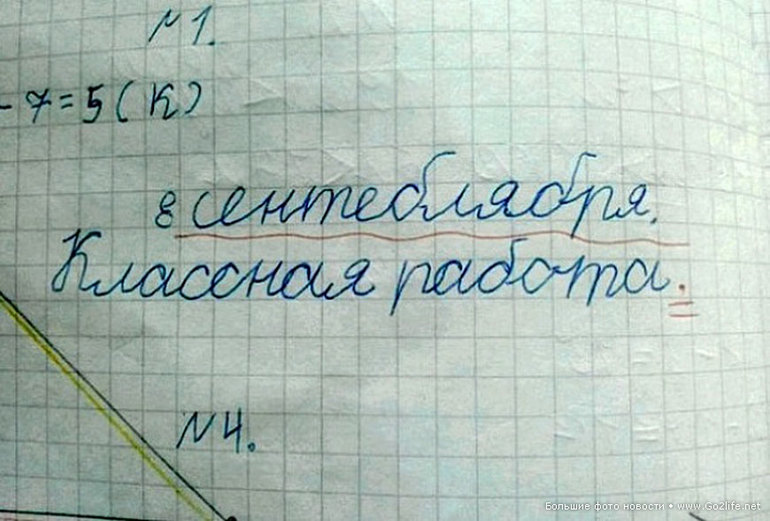 № 1.
- 7 = 5 ( К )
8 сентеблября.
Классная работа.
№ 4.
Большие фото новости • www.Go2life.net